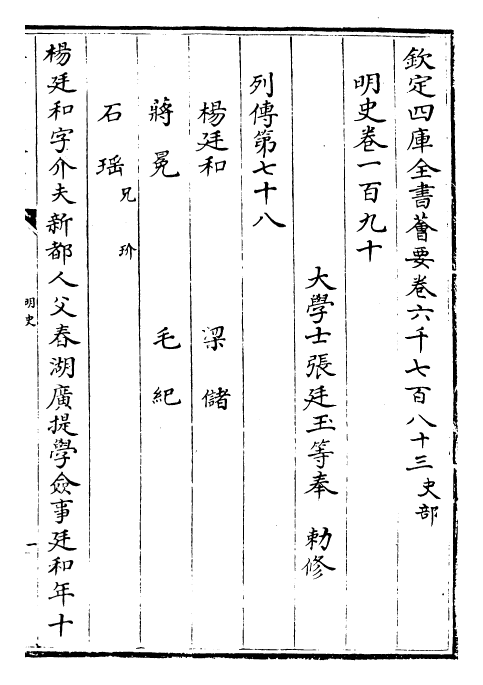 欽定四庫全書薈要卷六千七百八十三史部
明史卷一百九十
大學士張廷玉等奉　勅修
列傳第七十八
楊廷和　梁儲
蔣冕　毛紀
石珤兄玠
楊廷和字介夫新都人父春湖廣提學僉事廷和年十
明史
一